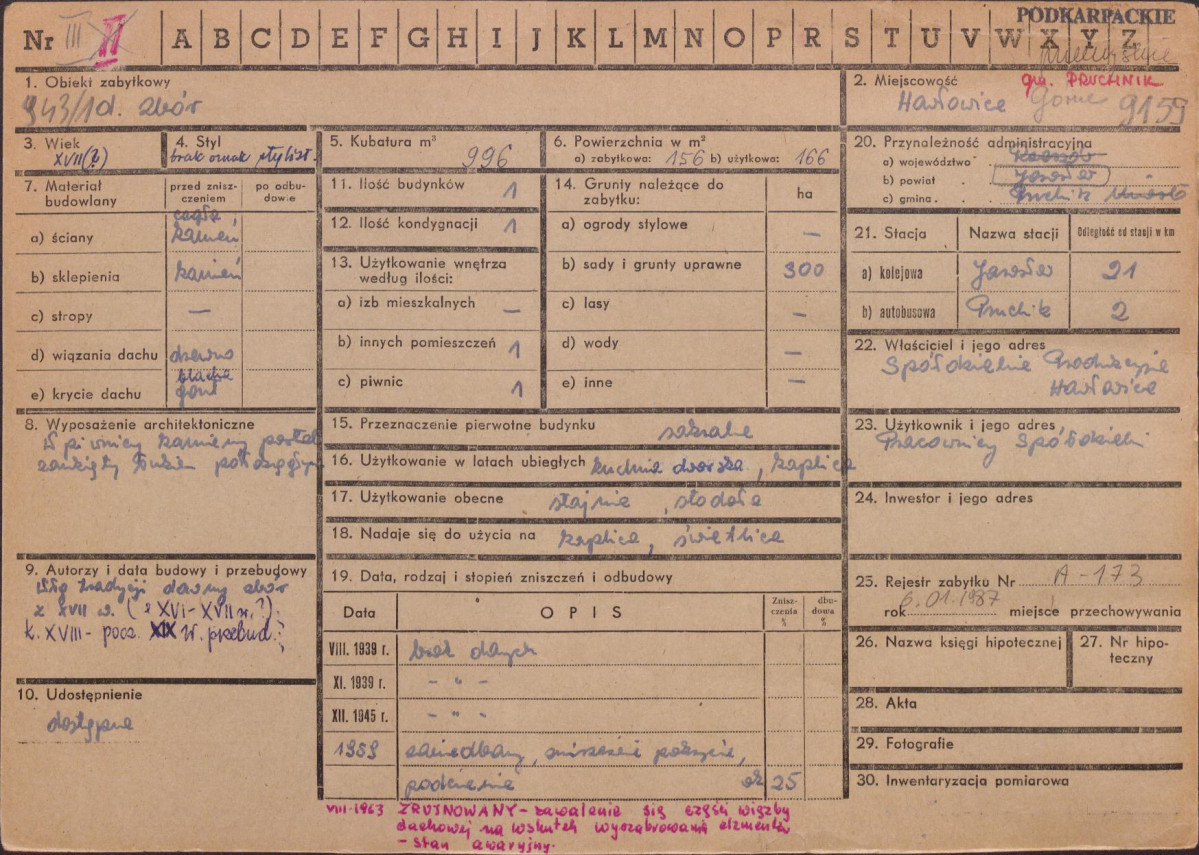 PODKARPACKIE
Nr III II A B C D E F G H I J K L M N O P R S T U V W X Y Z
1. Obiekt zabytkowy
943/1d. zbór
2. Miejscowość gm. PRUCHNIK
Hawłowice Górne 9159
3. Wiek
XVII(?)
4. Styl
brak oznak stylist.
5. Kubatura m³
996
6. Powierzchnia w m²
a) zabytkowa: 156 b) użytkowa: 166
20. Przynależność administracyjna
a) województwo
b) powiat Jarosław
c) gmina Pruchnik Miasto
7. Materiał budowlany
przed zniszczeniem
po odbudowie
a) ściany cegła, kamień
b) sklepienia kamień
c) stropy —
d) wiązania dachu drewno
e) krycie dachu blacha gont
11. Ilość budynków 1
12. Ilość kondygnacji 1
13. Użytkowanie wnętrza według ilości:
a) izb mieszkalnych —
b) innych pomieszczeń 1
c) piwnic 1
14. Grunty należące do zabytku:
ha
a) ogrody stylowe —
b) sady i grunty uprawne 300
c) lasy —
d) wody —
e) inne —
21. Stacja Nazwa stacji Odległość od stacji w km
a) kolejowa Jarosław 21
b) autobusowa Pruchnik 2
22. Właściciel i jego adres
Spółdzielnia Produkcyjna
Hawłowice
8. Wyposażenie architektoniczne
W piwnicy kamienny portal
zamknięty łukiem półokrągłym
15. Przeznaczenie pierwotne budynku sakralne
16. Użytkowanie w latach ubiegłych kuchnia dworska, kaplica
17. Użytkowanie obecne stajnia, stodoła
18. Nadaje się do użycia na kaplica, świetlica
23. Użytkownik i jego adres
Pracownicy Spółdzielni
24. Inwestor i jego adres
9. Autorzy i data budowy i przebudowy
Wg tradycji dawny zbór
z XVII w. (z XVI-XVII w.?);
k. XVIII - pocz. XIX w. przebud.?
10. Udostępnienie
dostępne
19. Data, rodzaj i stopień zniszczeń i odbudowy
Data OPIS Zniszczenia % dbudowa %
VIII. 1939 r. brak danych
XI. 1939 r. - " -
XII. 1945 r. - " -
1959 zaniedbany, zniszczenie pokrycia,
podcienia ok 25
VIII-1963 ZRUJNOWANY - zawalenie się części więźby
dachowej na wskutek wyszabrowania elementów
- stan awaryjny.
25. Rejestr zabytku Nr A-173
rok 6.01.1987 miejsce przechowywania
26. Nazwa księgi hipotecznej
27. Nr hipoteczny
28. Akta
29. Fotografie
30. Inwentaryzacja pomiarowa